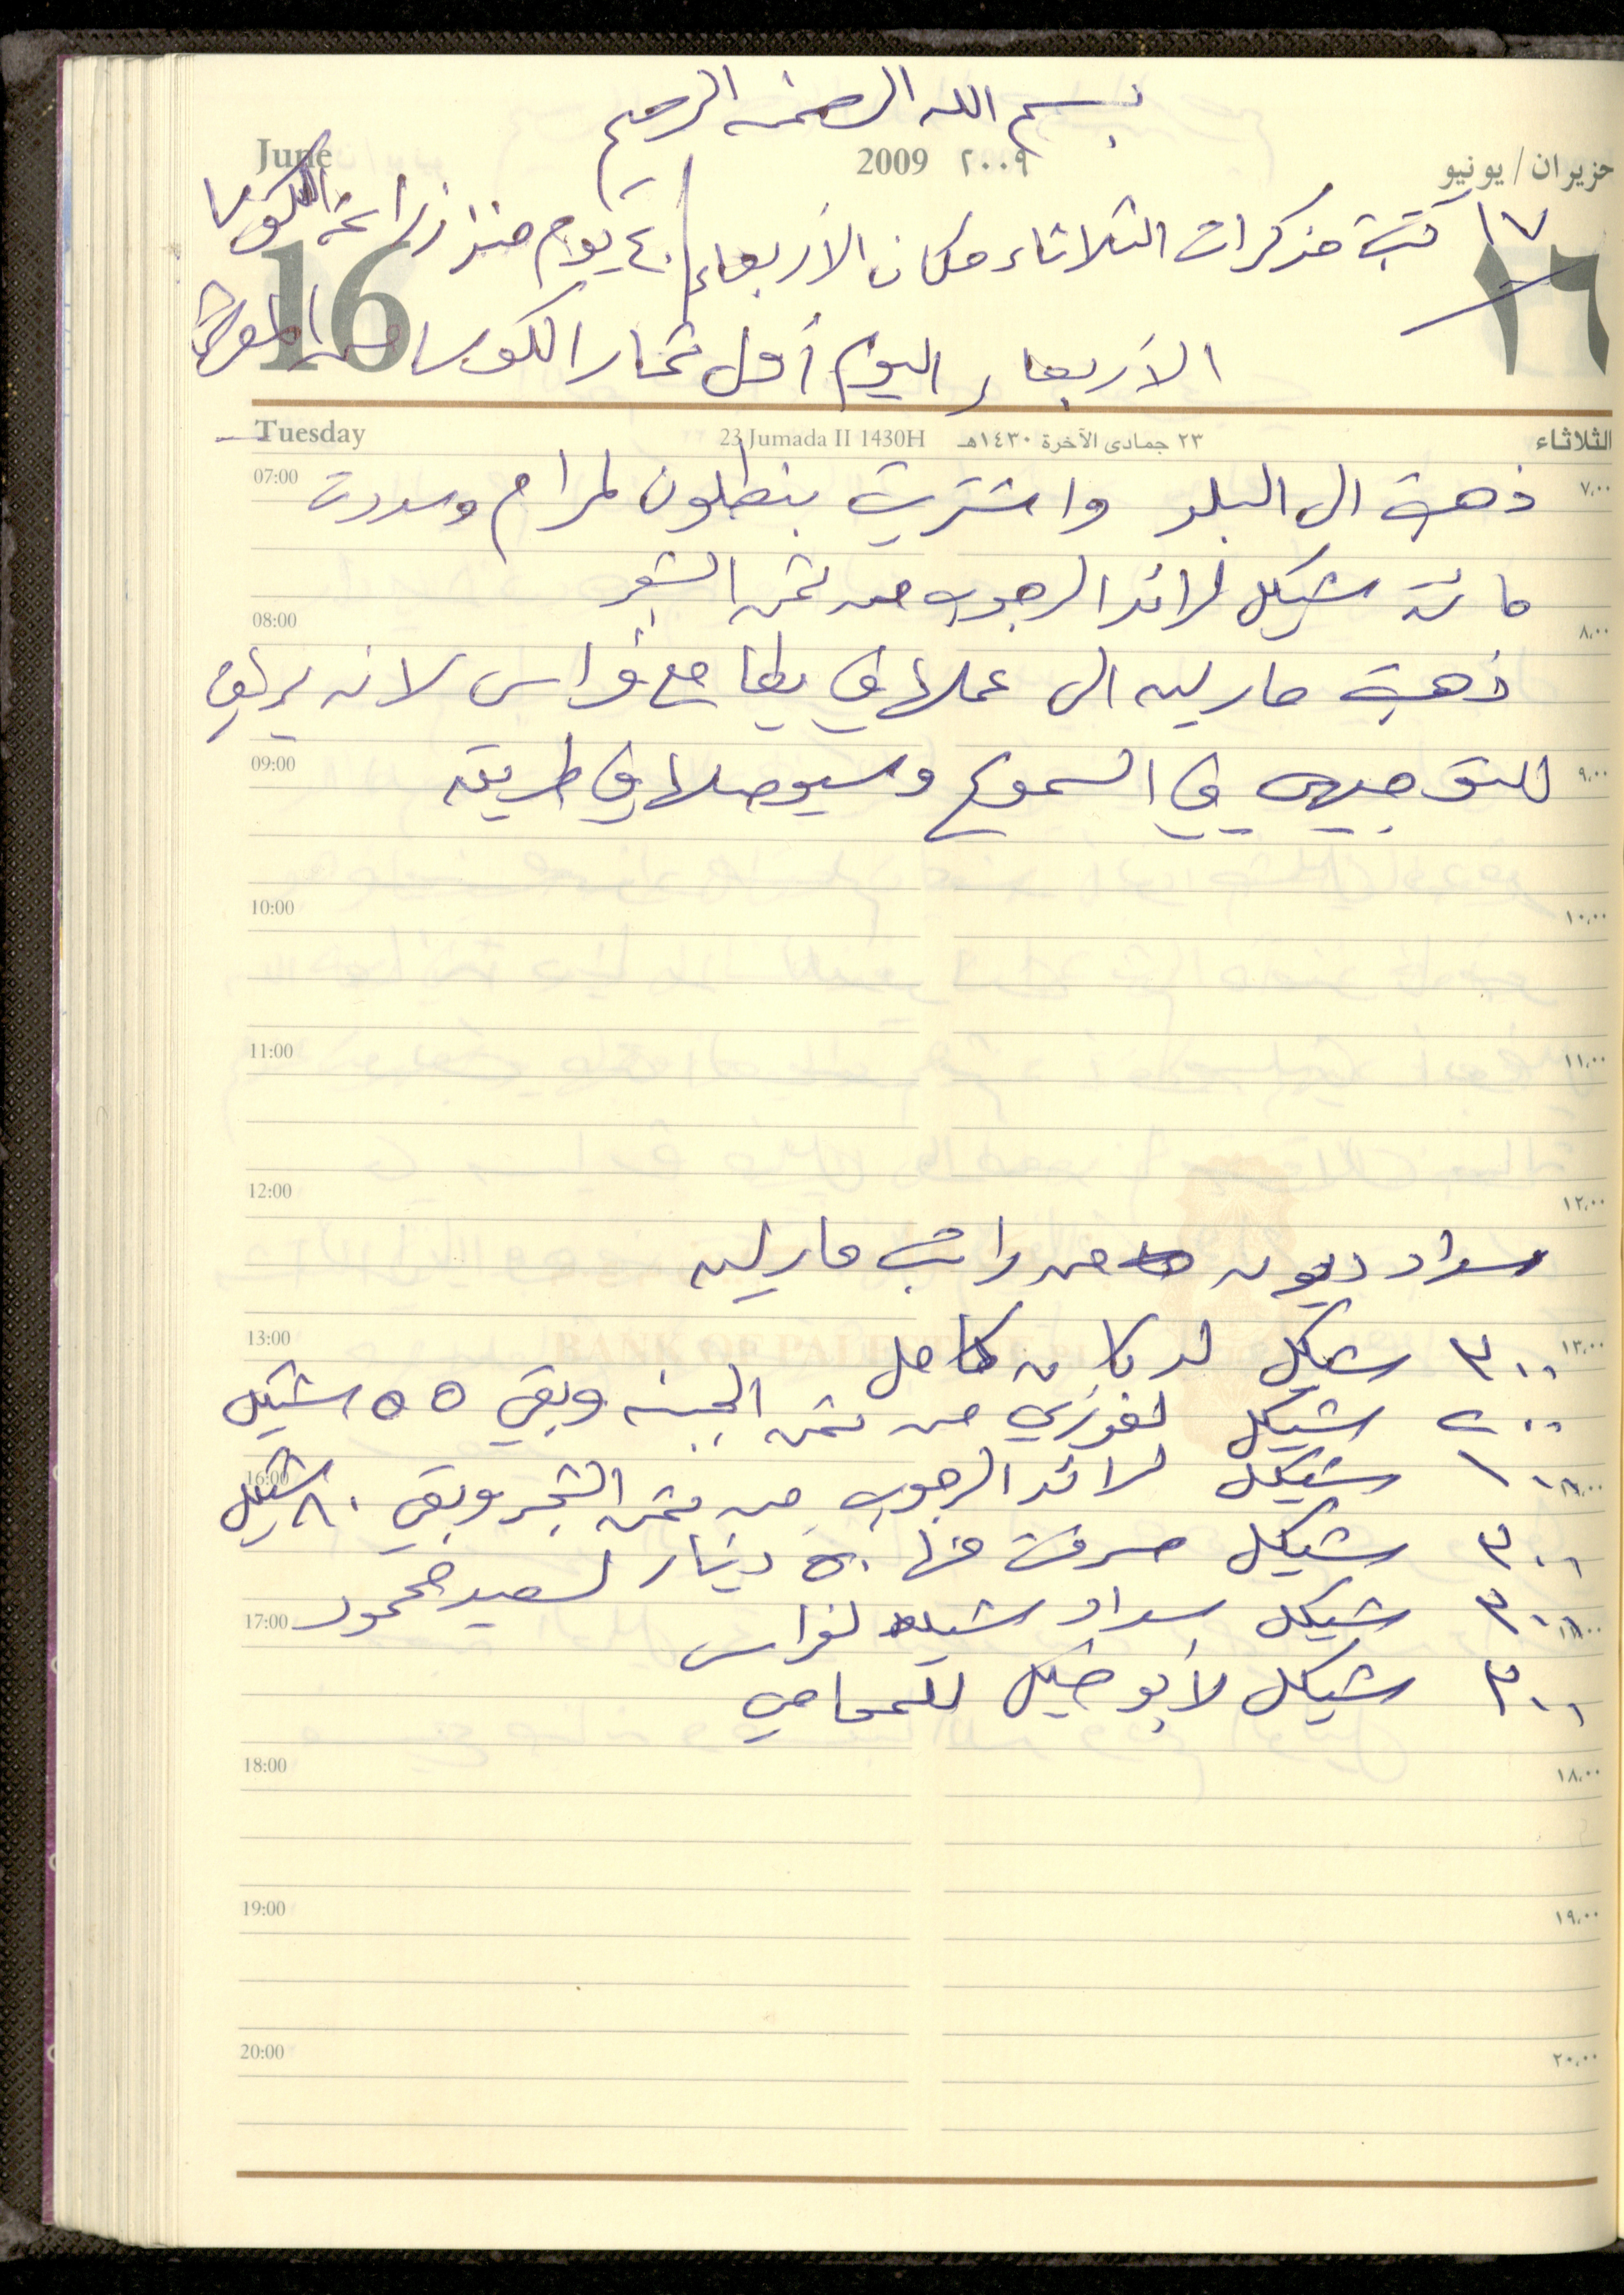 بسم الله الرحمن الرحيم
June 2009 ٢٠٠٩ حزيران / يونيو
١٧ كتبت مذكرات الثلاثاء مكان الأربعاء / ٤٠ يوم منذ زراعة الكوسا
16 ١٦
الأربعاء اليوم أول ثمار الكوسا من
Tuesday 23 Jumada II 1430H ٢٣ جمادى الآخرة ١٤٣٠هـ الثلاثاء
07:00 ٧,٠٠
ذهبت الى البلد واشتريت بنطلون لمرام وسددت
مائة شيكل لرائد الرجوب من ثمن الشعير
08:00 ٨,٠٠
ذهبت مارلين الى عملها في يطا مع فراس لانه يراقب
09:00 ٩,٠٠
للتوجيهي في السموع وسيوصلها في طريقه
10:00 ١٠,٠٠
11:00 ١١,٠٠
12:00 ١٢,٠٠
سداد ديون من راتب مارلين
13:00 ١٣,٠٠
BANK OF PALESTINE
٣٠٠ شيكل لدكان كامل
٢٠٠ شيكل لفوزي من ثمن الجبنه وبقي ٥٥ شيكل
16:00
١٠٠ شيكل لرائد الرجوب من ثمن الشعير وبقي ٨٠ شيكل
٣٠٠ شيكل صرفت منها ٥٠ دينار لسعيد محمود
17:00
٣٠٠ شيكل سداد شيك لفراس
٣٠٠ شيكل لأبو خليل للمحامي
18:00 ١٨,٠٠
19:00 ١٩,٠٠
20:00 ٢٠,٠٠